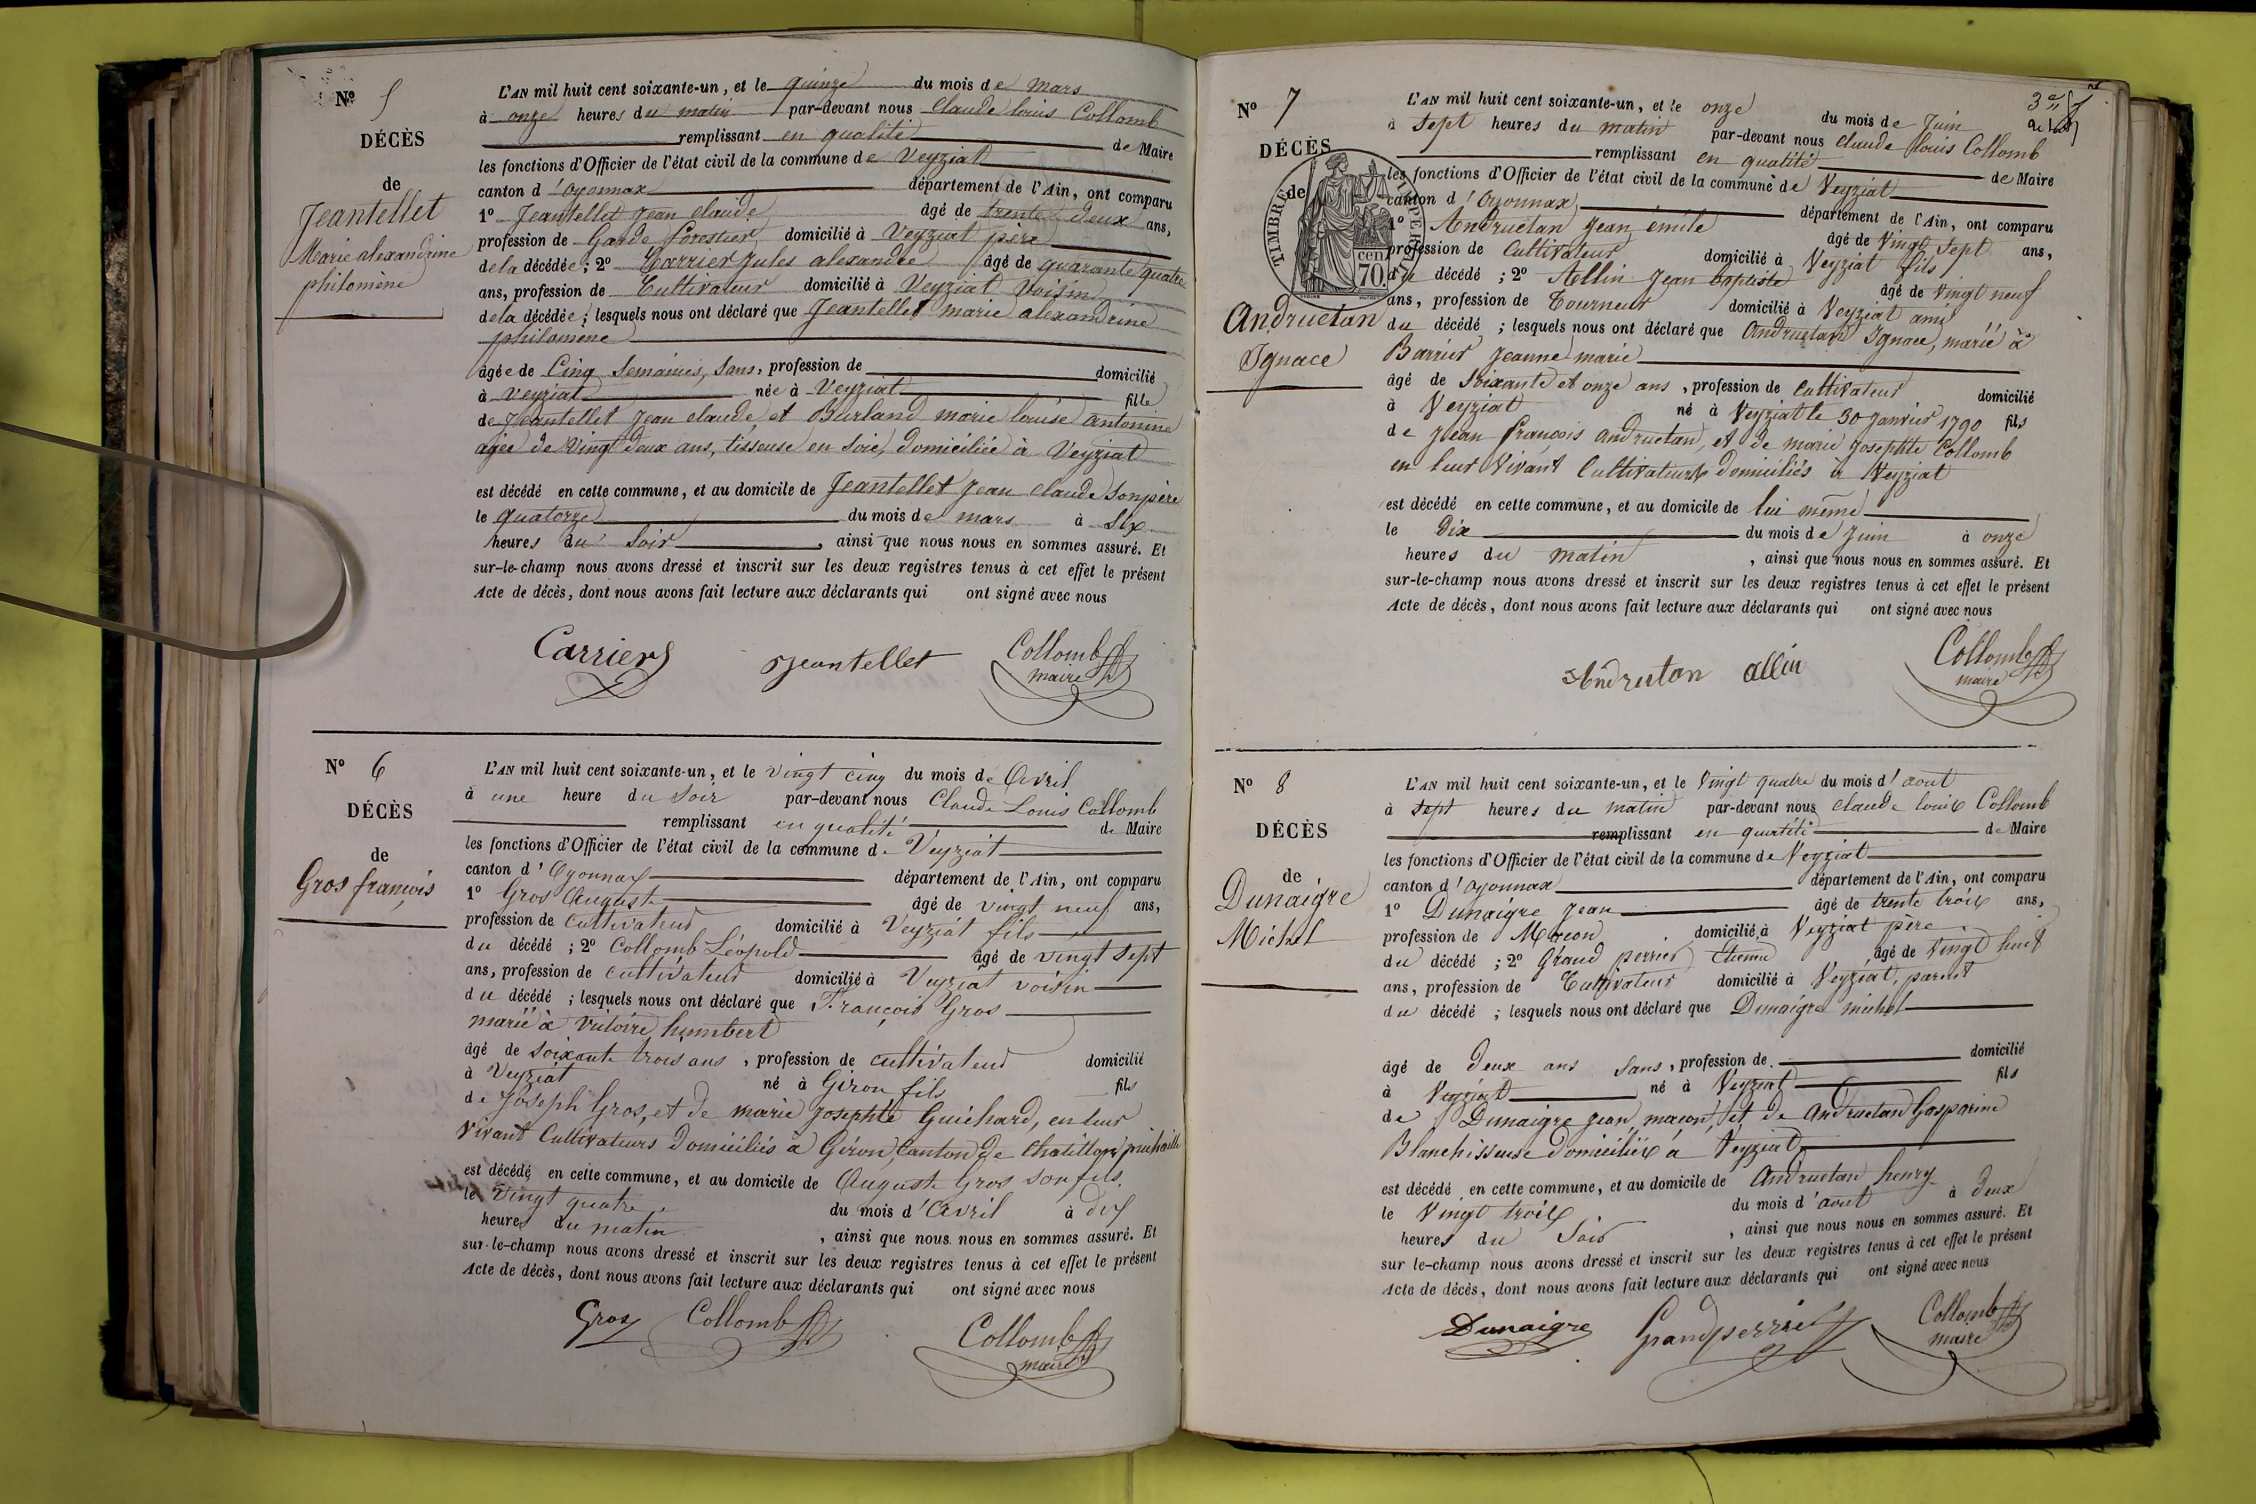 Nº 5
DÉCÈS
de
Jeantellet
Marie alexandrine
philomène
L'AN mil huit cent soixante-un, et le quinze du mois de Mars
à onze heures du matin par-devant nous Claude louis Collomb
remplissant en qualité de Maire
les fonctions d'Officier de l'état civil de la commune de Veyziat
canton d'oyonnax département de l'Ain, ont comparu
1º Jeantellet Jean Claude âgé de trente deux ans,
profession de Garde forestier domicilié à Veyziat père
de la décédée ; 2º Carrier Jules alexandre âgé de quarante quatre
ans, profession de Cultivateur domicilié à Veyziat Voisin
de la décédée ; lesquels nous ont déclaré que Jeantellet marie alexandrine
philomène
âgée de Cinq Semaines, Sans, profession de domicilié
à veyziat née à Veyziat fille
de Jeantellet Jean claude, et Burland marie louise antonine
agée de Vingt deux ans, tisseuse en Soie, domiciliée à Veyziat
est décédé en cette commune, et au domicile de Jeantellet Jean claude Son père
le quatorze du mois de mars à Six
heures du Soir, ainsi que nous nous en sommes assuré. Et
sur-le-champ nous avons dressé et inscrit sur les deux registres tenus à cet effet le présent
Acte de décès, dont nous avons fait lecture aux déclarants qui ont signé avec nous
Carrier Jeantellet Collomb
maire
Nº 6
DÉCÈS
de
Gros françois
L'AN mil huit cent soixante-un, et le vingt cinq du mois de Avril
à une heure du Soir par-devant nous Claude Louis Collomb
remplissant en qualité de Maire
les fonctions d'Officier de l'état civil de la commune de Veyziat
canton d'Oyonnax département de l'Ain, ont comparu
1º Gros Auguste âgé de vingt neuf ans,
profession de Cultivateur domicilié à Veyziat fils
du décédé ; 2º Collomb Léopold âgé de vingt Sept
ans, profession de Cultivateur domicilié à Veyziat voisin
du décédé ; lesquels nous ont déclaré que François Gros
marié à Victoire humbert
âgé de Soixante trois ans, profession de cultivateur domicilié
à Veyziat né à Giron fils fils
de Joseph Gros, et de marie Josephte Guichard, en leur
Vivant Cultivateurs Domiciliés à Giron, Canton de Chatillon michaille
est décédé en cette commune, et au domicile de Auguste Gros son fils,
le vingt quatre du mois d'Avril à dix
heures du matin, ainsi que nous nous en sommes assuré. Et
sur-le-champ nous avons dressé et inscrit sur les deux registres tenus à cet effet le présent
Acte de décès, dont nous avons fait lecture aux déclarants qui ont signé avec nous
Gros Collomb Collomb
maire
3e
Nº 7
DÉCÈS
de
Andruetan
Ignace
TIMBRE IMPERIAL
cen
70.
L'AN mil huit cent soixante-un, et le onze du mois de Juin
à Sept heures du matin par-devant nous claude louis Collomb
remplissant en qualité de Maire
les fonctions d'Officier de l'état civil de la commune de Veyziat
canton d'Oyonnax département de l'Ain, ont comparu
1º Andruetan Jean émile âgé de Vingt Sept ans,
profession de Cultivateur domicilié à Veyziat fils
du décédé ; 2º Allin Jean baptiste âgé de Vingt neuf
ans, profession de Tourneur domicilié à Veyziat ami
du décédé ; lesquels nous ont déclaré que Andruetan Ignace, marié à
Barrier Jeanne marie
âgé de Soixante et onze ans, profession de Cultivateur domicilié
à Veyziat né à Veyziat le 30 Janvier 1790 fils
de Jean François Andruetan, et de marie Josephte Collomb
en leur Vivant Cultivateurs domiciliés à Veyziat
est décédé en cette commune, et au domicile de lui même
le Dix du mois de Juin à onze
heures du matin, ainsi que nous nous en sommes assuré. Et
sur-le-champ nous avons dressé et inscrit sur les deux registres tenus à cet effet le présent
Acte de décès, dont nous avons fait lecture aux déclarants qui ont signé avec nous
Andrutan allin Collomb
maire
Nº 8
DÉCÈS
de
Dunaigre
Michel
L'AN mil huit cent soixante-un, et le Vingt quatre du mois d'aout
à Sept heures du matin par-devant nous claude louis Collomb
remplissant en qualité de Maire
les fonctions d'Officier de l'état civil de la commune de Veyziat
canton d'oyonnax département de l'Ain, ont comparu
1º Dunaigre Jean âgé de trente trois ans,
profession de Macon domicilié à Veyziat père
du décédé ; 2º Grand perrier Etienne âgé de Vingt huit
ans, profession de Cultivateur domicilié à Veyziat, parent
du décédé ; lesquels nous ont déclaré que Dunaigre michel
âgé de Deux ans Sans, profession de domicilié
à Veyziat né à Veyziat fils
de Dunaigre Jean, macon, et de Andruetan Gasparine
Blanchisseuse domiciliés à Veyziat
est décédé en cette commune, et au domicile de Andruetan henry
le Vingt trois du mois d'aout à Deux
heures du Soir, ainsi que nous nous en sommes assuré. Et
sur le-champ nous avons dressé et inscrit sur les deux registres tenus à cet effet le présent
Acte de décès, dont nous avons fait lecture aux déclarants qui ont signé avec nous
Dunaigre Grandperrier Collomb
maire